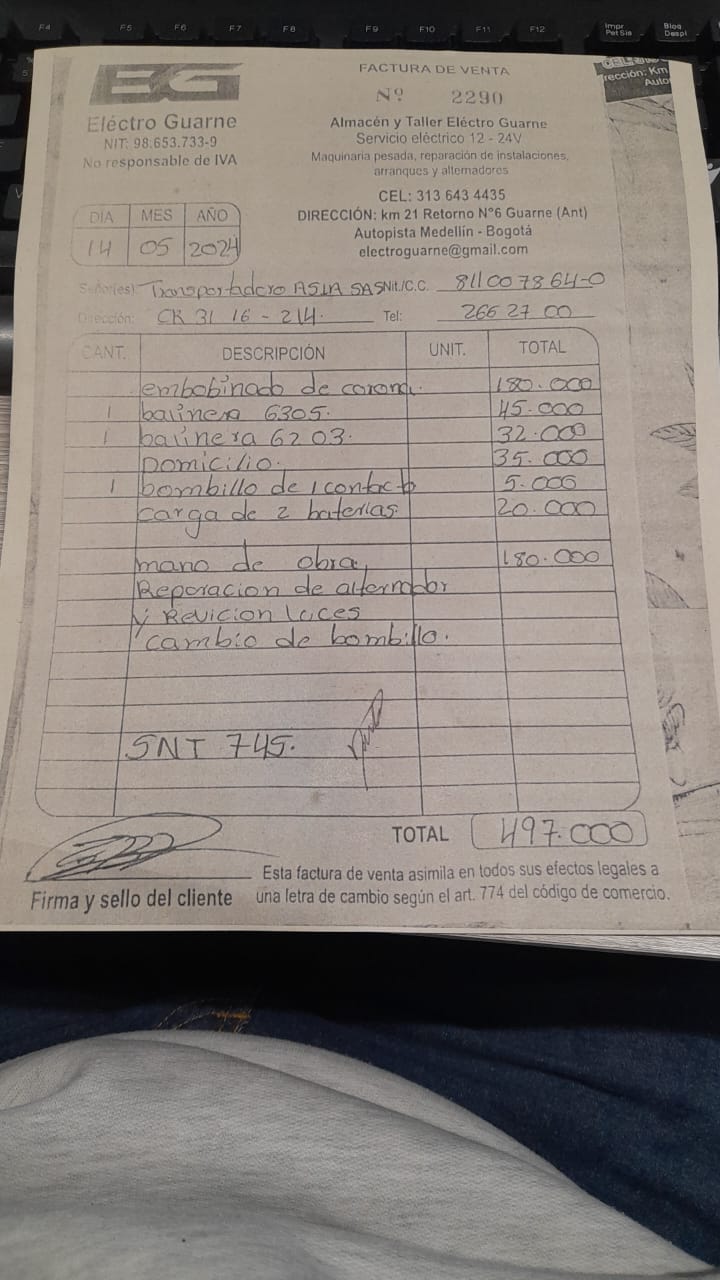 F4 F5 F6 F7 F8 F9 F10 F11 F12 Impr Pet Sis Bloq Despl
EG
FACTURA DE VENTA
Nº 2290
rección: Km
Auto
Eléctro Guarne
NIT: 98.653.733-9
No responsable de IVA
Almacén y Taller Eléctro Guarne
Servicio eléctrico 12 - 24V
Maquinaria pesada, reparación de instalaciones,
arranques y alternadores
CEL: 313 643 4435
DIRECCIÓN: km 21 Retorno N°6 Guarne (Ant)
Autopista Medellín - Bogotá
electroguarne@gmail.com
DÍA MES AÑO
14 05 2024
Señor(es): Transportadora ASIA SAS Nit./C.C. 811007864-0
Dirección: CR 31 16 - 214. Tel: 266 27 00
CANT. DESCRIPCIÓN UNIT. TOTAL
embobinado de corona. 180.000
1 balinera 6305. 45.000
1 balinera 6203. 32.000
Domicilio. 35.000
1 bombillo de 1 contacto 5.000
carga de 2 baterias. 20.000
mano de obra, 180.000
Reporacion de alternador
y Revicion luces
cambio de bombillo.
SNT 745.
TOTAL 497.000
Firma y sello del cliente
Esta factura de venta asimila en todos sus efectos legales a
una letra de cambio según el art. 774 del código de comercio.